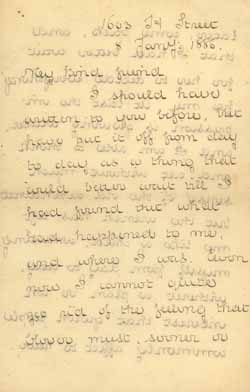 1603 Street
8 Jan'y, 1886.
My kind friend
I should have
written to you before, but
have put it off from day
to day as a thing that
could wait till I
had found out what
had happened to me
and where I was. Even
now I cannot quite
get rid of the feeling that
must, sooner or